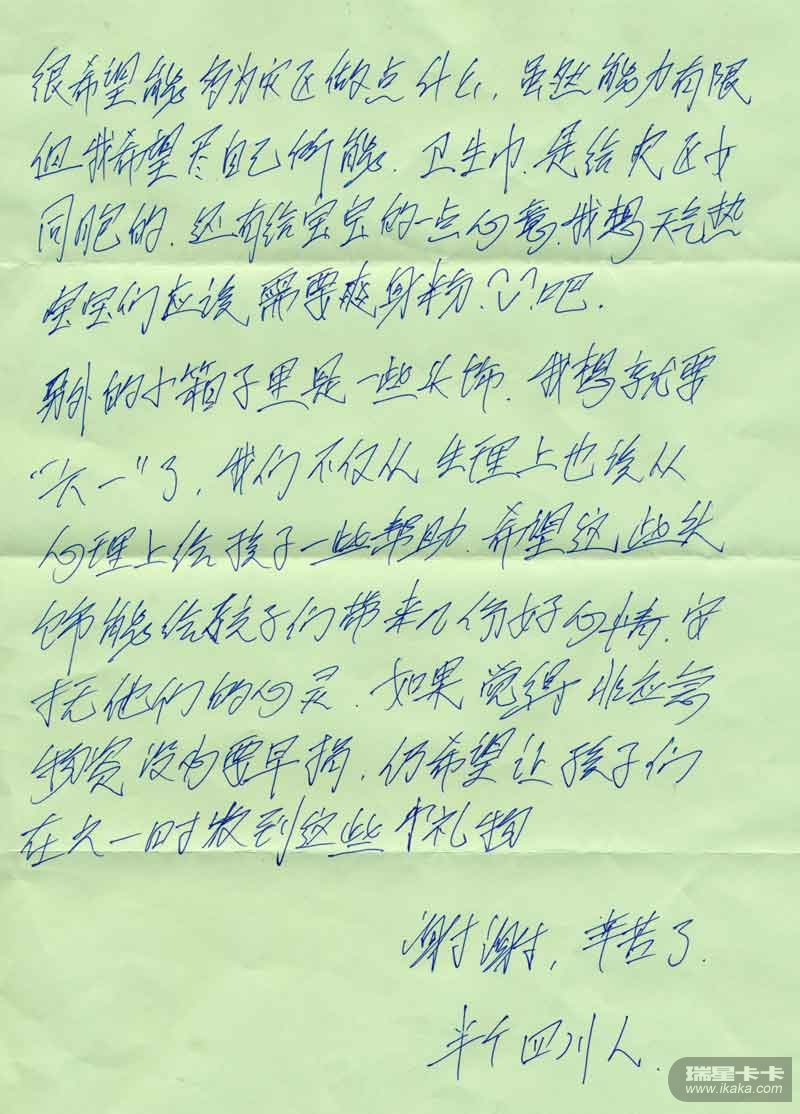 很希望能多为灾区做点什么,虽然能力有限
但我希望尽自己所能.卫生巾是给灾区女
同胞的.还有给宝宝的一点心意.我想天气热
宝宝们应该需要爽身粉.吧.
另外的小箱子里是一些头饰.我想就要
“六一”了,我们不仅从生理上也该从
心理上给孩子一些帮助.希望这些头
饰能给孩子们带来几份好心情.安
抚他们的心灵.如果觉得非应急
物资没必要早捐,仍希望让孩子们
在六一时收到这些小礼物
谢谢,辛苦了.
半个四川人.
瑞星卡卡
www.ikaka.com